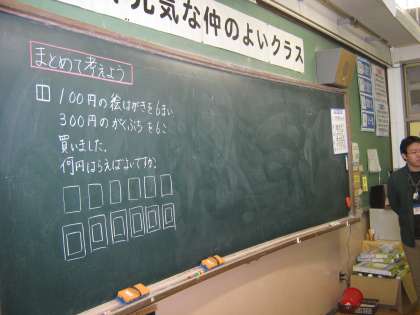 元気な仲のよいクラス
まとめて考えよう
1 100円の絵はがきを6まい
300円のがくぶちを6こ
買いました。
何円はらえばよいですか。